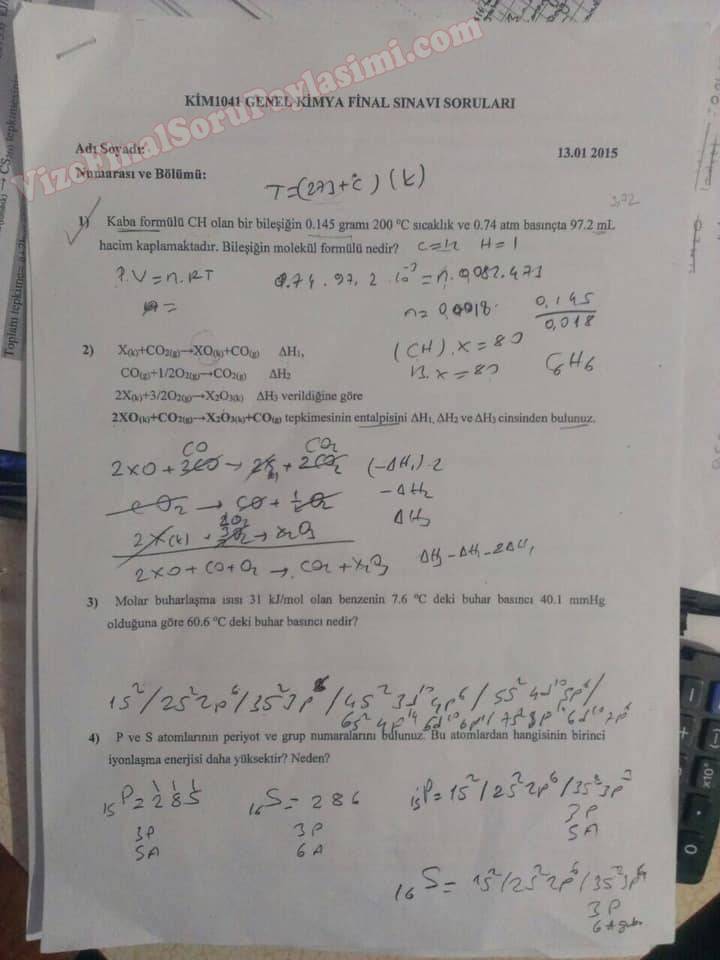 VizeFinalSoruPaylasimi.com
KİM1041 GENEL KİMYA FİNAL SINAVI SORULARI
Adı Soyadı:
13.01 2015
Numarası ve Bölümü:
T=(273+°C) (K)
1) Kaba formülü CH olan bir bileşiğin 0.145 gramı 200 °C sıcaklık ve 0.74 atm basınçta 97.2 mL
hacim kaplamaktadır. Bileşiğin molekül formülü nedir? C=12 H=1
P.V=n.RT 0.74.97,2 10⁻³=n.0,082.473
n=0,0018 0,145
0,018
(CH).x=80
13.x=80 C6H6
2) X(k)+CO2(g)→XO(k)+CO(g) ΔH1,
CO(g)+1/2O2(g)→CO2(g) ΔH2
2X(k)+3/2O2(g)→X2O3(k) ΔH3 verildiğine göre
2XO(k)+CO2(g)→X2O3(k)+CO(g) tepkimesinin entalpisini ΔH1, ΔH2 ve ΔH3 cinsinden bulunuz.
(-ΔH1).2
-ΔH2
ΔH3
2XO+CO+O2→CO2+X2O3 ΔH3-ΔH2-2ΔH1
3) Molar buharlaşma ısısı 31 kJ/mol olan benzenin 7.6 °C deki buhar basıncı 40.1 mmHg
olduğuna göre 60.6 °C deki buhar basıncı nedir?
1s²/2s²2p⁶/3s²3p⁶/4s²3d¹⁰4p⁶/5s²4d¹⁰5p⁶/
4) P ve S atomlarının periyot ve grup numaralarını bulunuz. Bu atomlardan hangisinin birinci
iyonlaşma enerjisi daha yüksektir? Neden?
15P=285 16S=286 15P=1s²/2s²2p⁶/3s²3p³
3P 3P 3P
5A 6A 5A
16S=1s²/2s²2p⁶/3s²3p⁴
3P
6A grubu